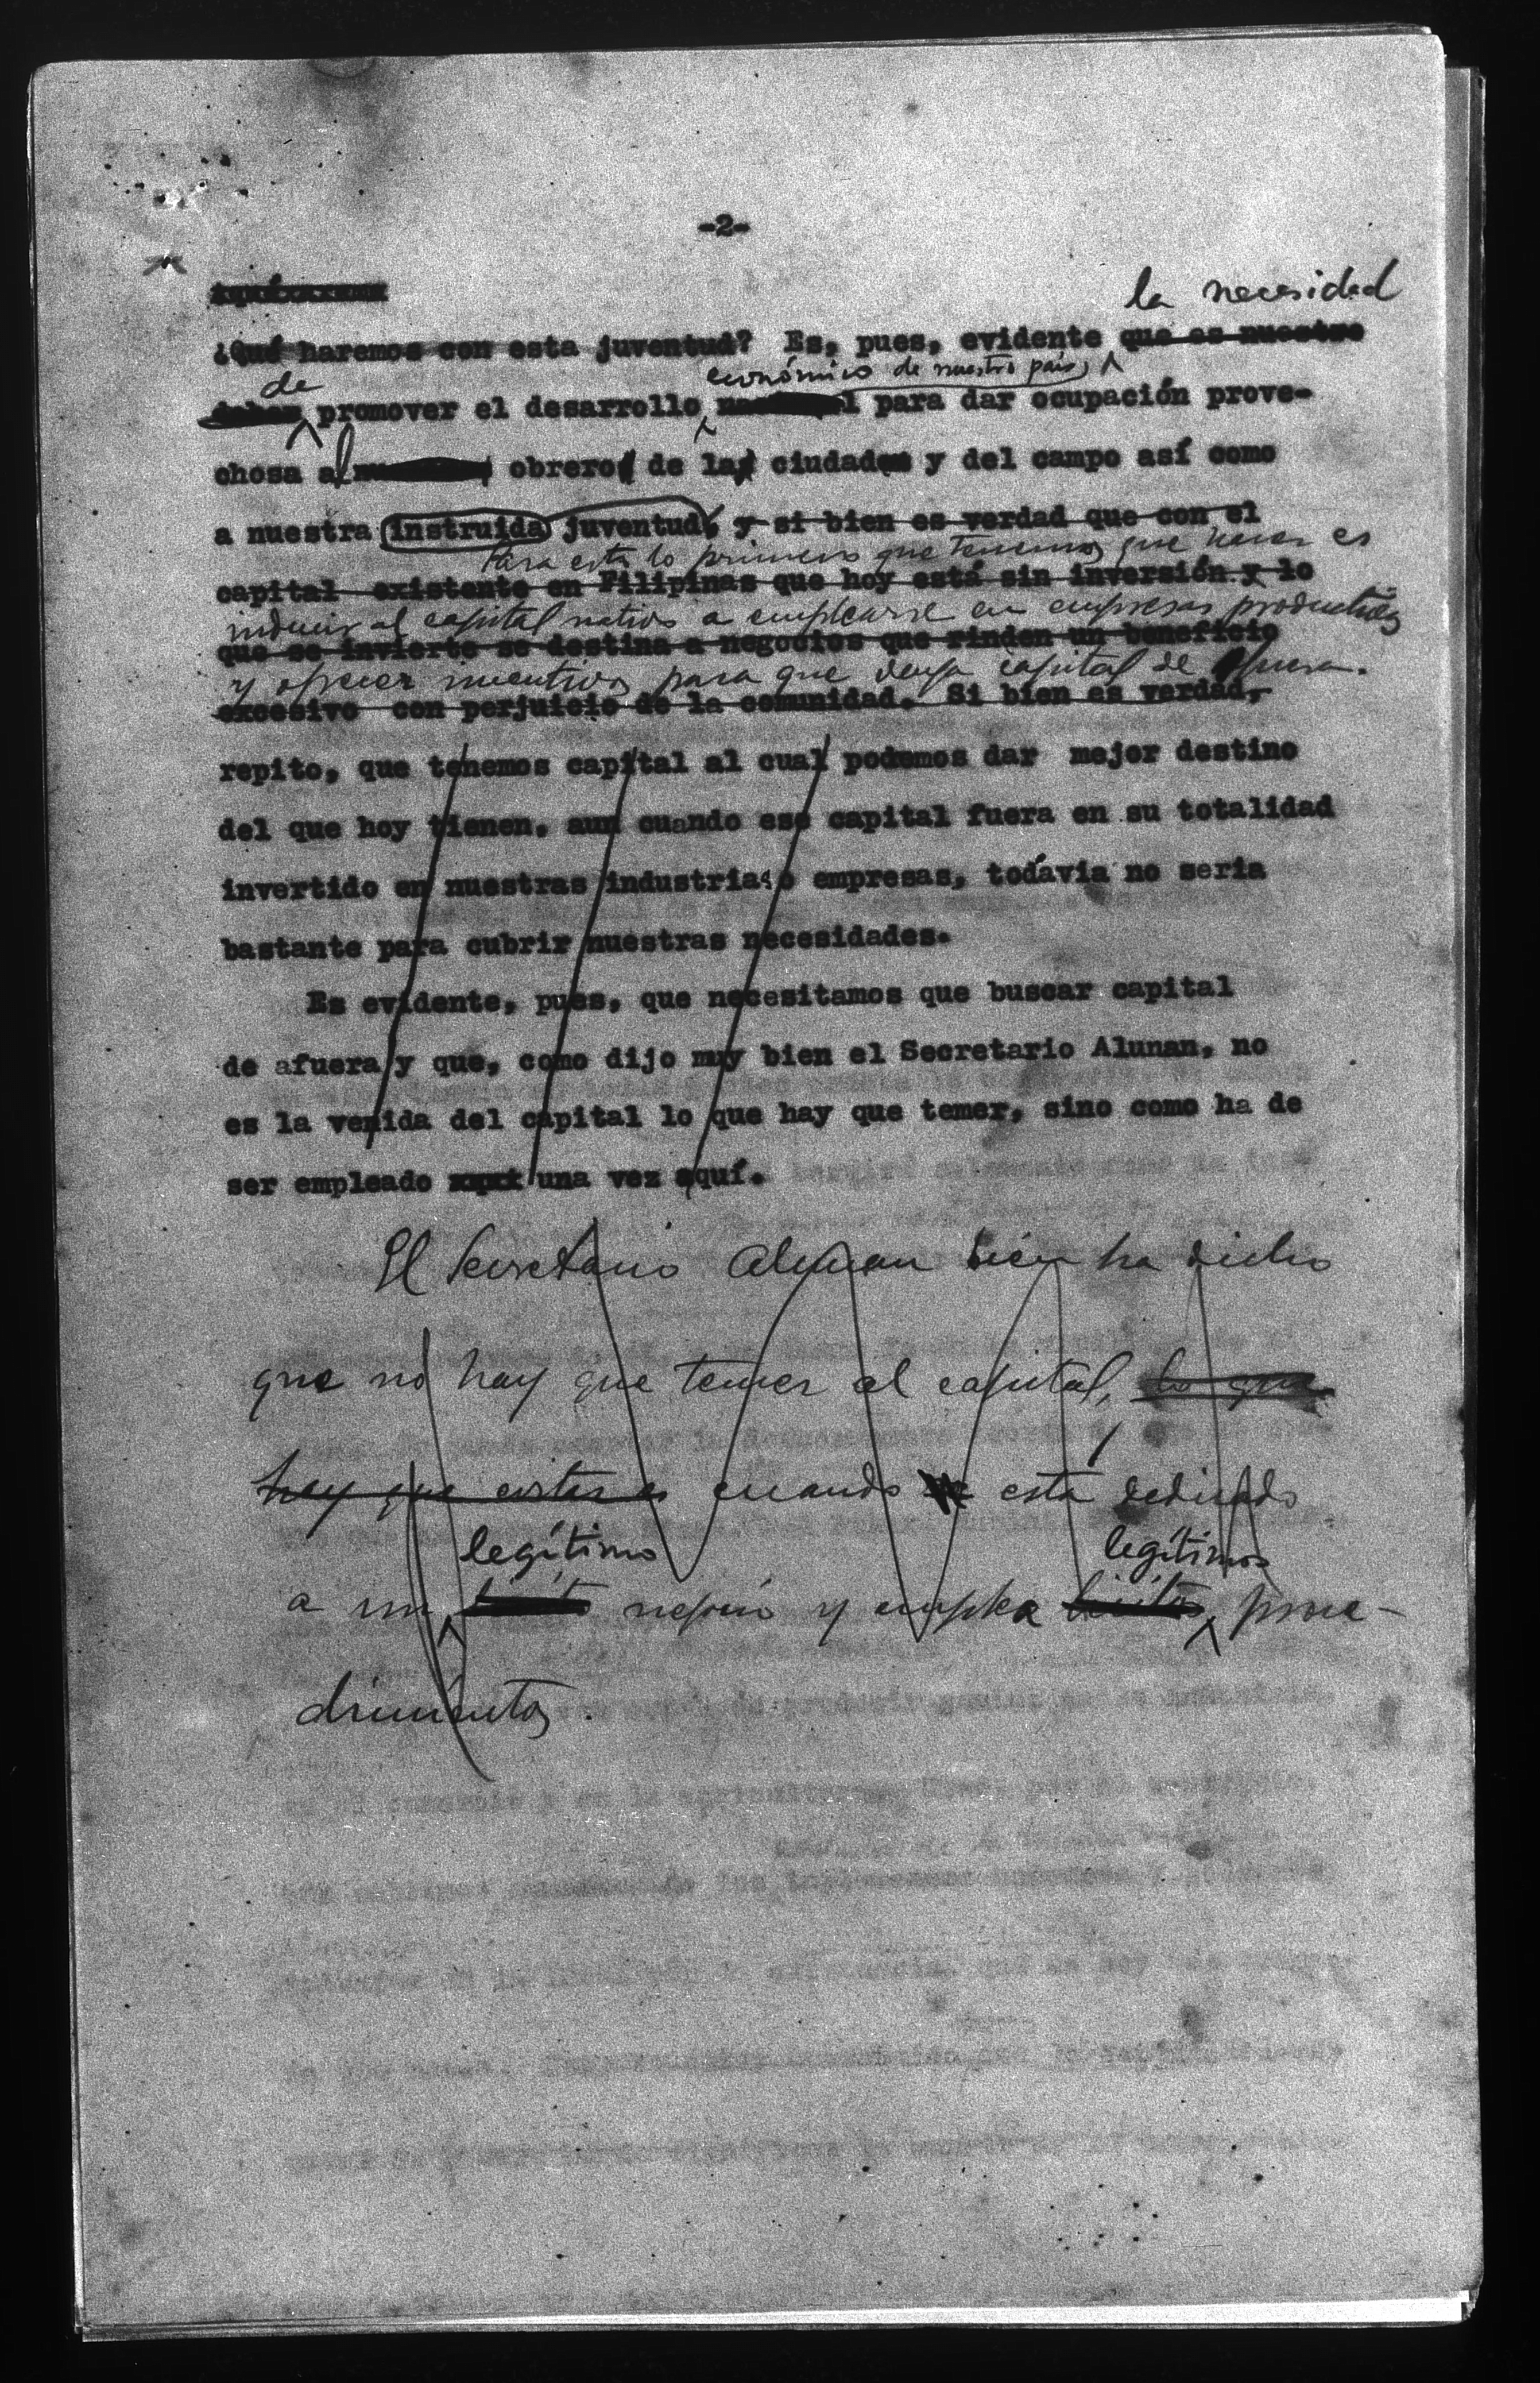 -2-
la necesidad
¿Qué haremos con esta juventud? Es, pues, evidente que es nuestro
económico de nuestro país,
de
deber promover el desarrollo para dar ocupación prove-
chosa al obrero de la ciudad y del campo así como
a nuestra instruida juventud, y si bien es verdad que con el
Para esto lo primero que tenemos que hacer es
capital existente en Filipinas que hoy está sin inversión y lo
inducir al capital nativo a emplearse en empresas productivas
que se invierte se destina a negocios que rinden un beneficio
y ofrecer incentivos para que venga capital de afuera.
excesivo con perjuicio de la comunidad. Si bien es verdad,
repito, que tenemos capital al cual podemos dar mejor destino
del que hoy tienen, aun cuando ese capital fuera en su totalidad
invertido en nuestras industrias o empresas, todavía no seria
bastante para cubrir nuestras necesidades.
Es evidente, pues, que necesitamos que buscar capital
de afuera y que, como dijo muy bien el Secretario Alunan, no
es la venida del capital lo que hay que temer, sino como ha de
ser empleado una vez aquí.
El Secretario Alunan bien ha dicho
que no hay que temer al capital, lo que
hay que evitar es cuando está dedicado
legítimo legítimos
a un lícito negocio y emplea lícitos proce-
dimientos.